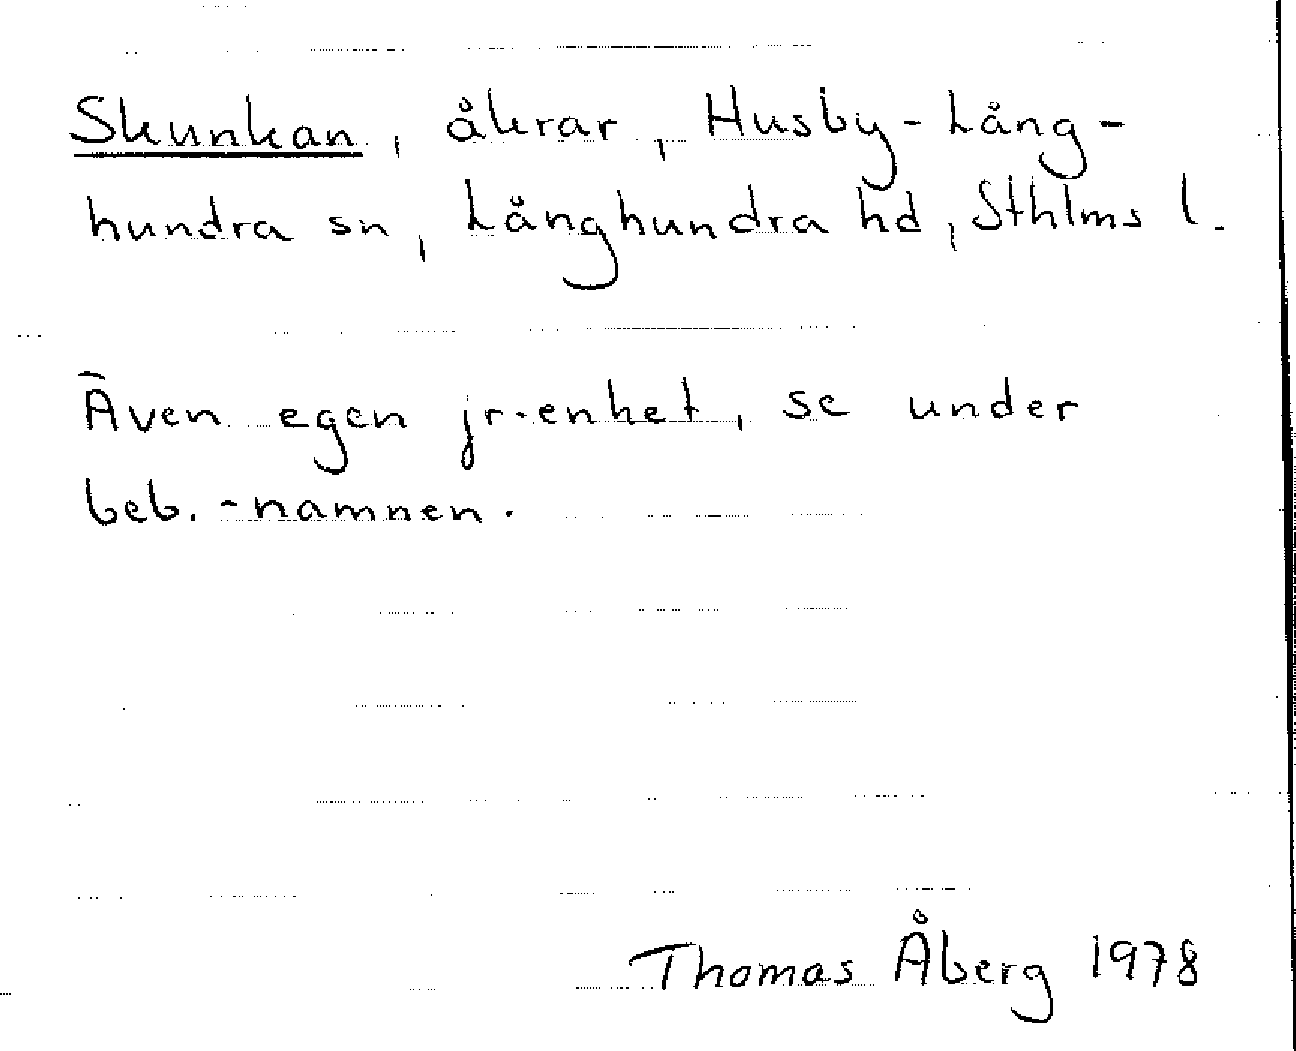 Skunkan, åkrar, Husby-Lång-
hundra sn, Långhundra hd, Sthlms l.
Även egen jr-enhet, se under
beb.-namnen.
Thomas Åberg 1978